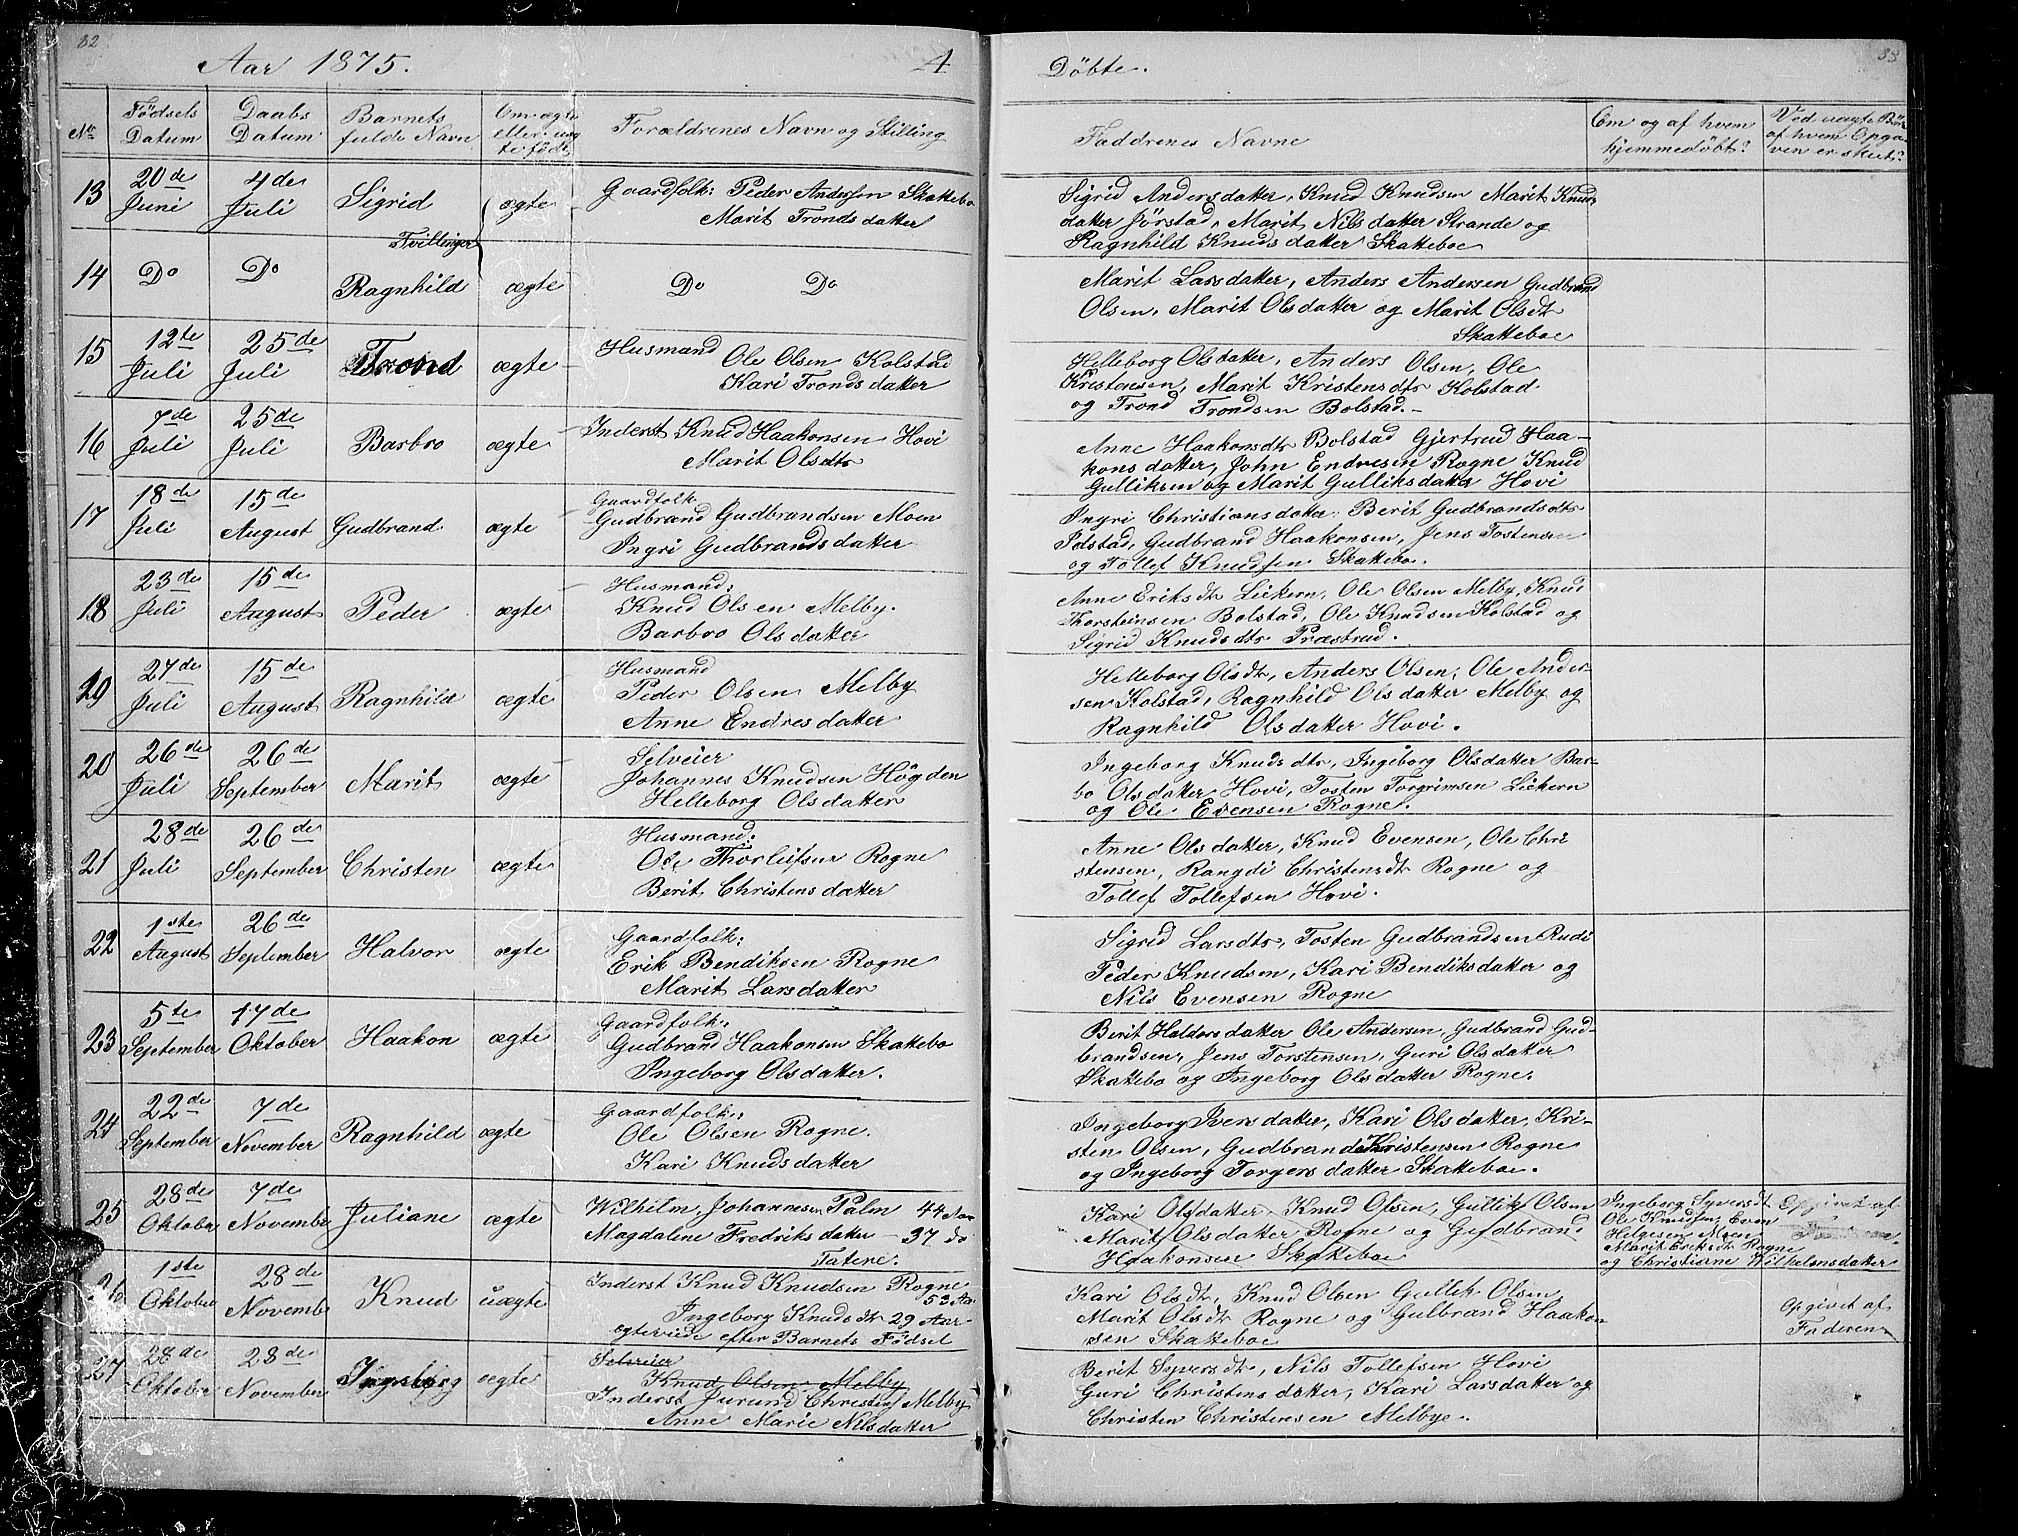 82
Aar 1875.
A
Døbte.
83
No
Fødsels Datum
Daabs Datum
Barnets fulde Navn
Om ægte eller uægte født
Forældrenes Navn og Stilling
Faddrenes Navne
Om og af hvem hjemmedøbt?
Ved uægte Bør af hvem Opgaven er skeet?
13 20de Juni 4de Juli Sigrid ægte Gaardfolk: Peder Andersen Skattebo
Marit Tronds datter
Sigrid Andersdatter, Knud Knudsen Marit Knuds
datter Jørstad, Marit Nils datter Strande og
Ragnhild Knuds datter Skatteboe
Tvillinger
14 Do Do Ragnhild ægte Do Do
Marit Lars datter, Anders Andersen Gudbrand
Olsen, Marit Olsdatter og Marit Olsdtr
Skatteboe
15 12te Juli 25de Juli Trond ægte Husmand Ole Olsen Kolstad
Kari Tronds datter
Helleborg Olsdatter, Anders Olsen, Ole
Kristensen, Marit Kristensdtr Kolstad
og Trond Trondsen Bolstad.-
16 7de Juli 25de Juli Barbro ægte Inderst Knud Haakonsen Hovi
Marit Olsdtr
Anne Haakonsdtr Bolstad Gjertrud Haa-
kons datter, John Endresen Rogne Knud
Gulliksen og Marit Gulliksdatter Hovi
17 18de Juli 15de August Gudbrand ægte Gaardfolk
Gudbrand Gudbrandsen Moen
Ingri Gudbrandsdatter
Ingri Christiansdatter, Berit Gudbrandsdtr
Polstad, Gudbrand Haakonsen, Jens Tostensen
og Tollef Knudsen Skattebo.
18 23de Juli 15de August Peder ægte Husmand:
Knud Olsen Melby.
Barbro Olsdatter
Anne Eriks dtr Liekern, Ole Olsen Melby, Knud
Thorsteinsen Bolstad, Ole Knudsen Kolstad og
Sigrid Knudsdtr Præstrud.
19 27de Juli 15de August Ragnhild ægte Husmand
Peder Olsen Melby
Anne Endres datter
Helleborg Olsdtr, Anders Olsen, Ole Ander-
sen Kolstad, Ragnhild Olsdatter Melby og
Ragnhild Olsdatter Hovi.
20 26de Juli 26de September Marit ægte Selveier
Johannes Knudsen Høgden
Helleborg Olsdatter
Ingeborg Knuds dtr, Ingeborg Olsdatter Bar-
bo Olsdatter Hovi, Tosten Torgrimsen Liekern
og Ole Evensen Rogne.
21 28de Juli 26de September Christen ægte Husmand:
Ole Thorleifsen Rogne
Berit Christens datter
Anne Olsdatter, Knud Evensen, Ole Chri
stensen, Rangdi Christensdtr Rogne og
Tollef Tollefsen Hovi.
22 1ste August 26de September Halvor ægte Gaardfolk:
Erik Bendiksen Rogne
Marit Larsdatter
Sigrid Larsdtr, Tosten Gudbrandsen Rudi
Peder Knudsen, Kari Bendiksdatter og
Nils Evensen Rogne
23 5te September 17de Oktober Haakon ægte Gaardfolk:
Gudbrand Haakonsen Skattebo
Ingeborg Olsdatter.
Berit Haldors datter Ole Andersen, Gudbrand Gud-
brandsen, Jens Torstensen, Guri Olsdatter
Skattebo og Ingeborg Olsdatter Rogne.
24 22de September 7de November Ragnhild ægte Gaardfolk:
Ole Olsen Rogne.
Kari Knuds datter
Ingeborg Ivers datter, Kari Olsdatter, Kri-
sten Olsen, Gudbrand Kristensen Rogne
og Ingeborg Torgers datter Skatteboe.
25 28de Oktober 7de November Juliane ægte Wilhelm Johannesen Palm 44 Aar
Magdalene Fredriks datter - 37 do
Tatere.
Kari Olsdatter Knud Olsen, Gullik Olsen
Marit Olsdatter Rogne og Gudbrand
Haakonsen Skatteboe
Ingeborg Syversdtr
Ole Knudsen, Even
Helgesen Moen
Marit Eriksdtr Rogne
og Christiane Wilhelmsdatter
Opgivet af
26 1ste Oktober 28de Novemb Knud uægte Inderst Knud Knudsen Rogne
53 Aar
Ingeborg Knudsdtr 29 Aar-
ægteviede efter Barnets Fødsel
Kari Olsdtr, Knud Olsen Gullik Olsen
Marit Olsdtr Rogne og Gulbrand Haakon
sen Skatteboe
Opgivet af
Faderen
27 28de Oktober 28de November Ingeborg ægte Selveier
Knud Olsen Melby
Inderst Jurund Christens Melby
Anne Marie Nilsdatter
Berit Syversdtr, Nils Tollefsen Hovi
Guri Christens datter, Kari Larsdatter og
Christen Christensen Melbye.